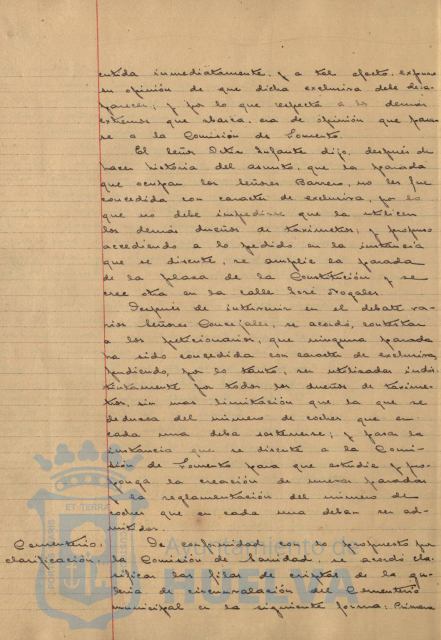 cutida inmediatamente, y a tal efecto, expuso
su opinión de que dicha exclusiva debe desa-
parecer; y por lo que respecta a los demás
extremos que abarca, era de opinión que pasa-
se a la Comisión de Fomento.
El Señor Oster Infante dijo, después de
hacer historia del asunto, que la parada
que ocupan los señores Barrero, no les fue
concedida con caracter de exclusiva, por lo
que no debe impedirse que la utilicen
los demás dueños de taximetros; y propuso
accediendo a lo pedido en la instancia
que se discute, se amplie la parada
de la plaza de la Constitución y se
cree otra en la calle José Nogales.
Después de intervenir en el debate va-
rios señores Concejales, se acordó, contestar
a los peticionarios, que ninguna parada
ha sido concedida con caracter de exclusiva,
pudiendo, por lo tanto, ser utilizadas indis-
tintamente por todos los dueños de taxime-
tros, sin mas limitación que la que se
deduzca del número de coches que en
cada una deba sostenerse; y pasar la
instancia que se discute a la Comi-
sión de Fomento para que estudie y pro-
ponga la creación de nuevas paradas
y la reglamentación del número de
coches que en cada una deban ser ad-
mitidos.
Cementerio: De conformidad con lo propuesto por
clasificación. la Comisión de Sanidad, se acordó cla-
sificar las filas de criptas de la ga-
lería de circunvalación del Cementerio
municipal en la siguiente forma: Primera
ET TERRA
Ayuntamiento de
HUELVA